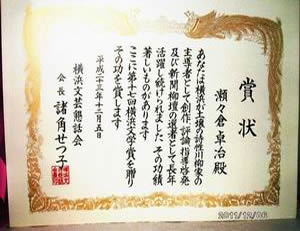 賞状
瀬々倉卓治殿
あなたは横浜が土壌の時代川柳家の
主導者として創作、評論、指導、啓発
及び新聞柳壇の選者として長年
活躍し続けられました その功績
著しいものがあります
ここに第十七回横浜文学賞を贈り
その功を賞します
平成二十三年十二月五日
横浜文芸懇話会
会長 諸角せつ子
2011/12/06